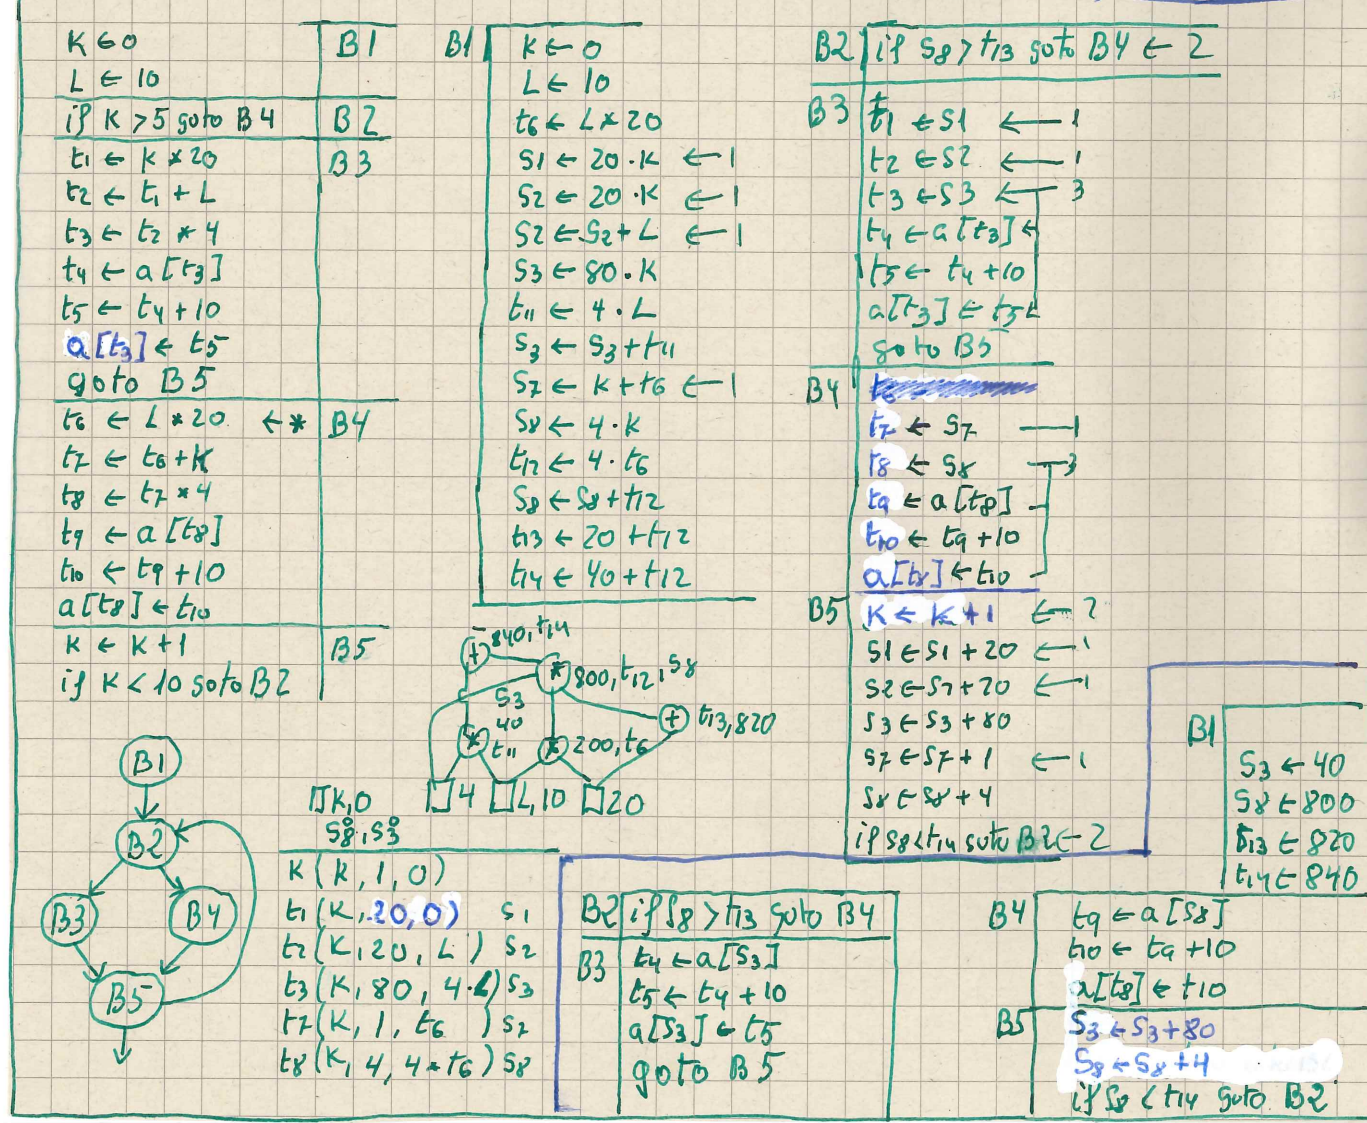 K ← 0 B1
L ← 10
if K > 5 goto B4 B2
t1 ← K * 20 B3
t2 ← t1 + L
t3 ← t2 * 4
t4 ← a[t3]
t5 ← t4 + 10
a[t3] ← t5
goto B5
t6 ← L * 20 ← * B4
t7 ← t6 + K
t8 ← t7 * 4
t9 ← a[t8]
t10 ← t9 + 10
a[t8] ← t10
K ← K + 1 B5
if K < 10 goto B2
B1
B2
B3 B4
B5
B1 K ← 0
L ← 10
t6 ← L * 20
S1 ← 20 · K ← 1
S2 ← 20 · K ← 1
S2 ← S2 + L ← 1
S3 ← 80 · K
t11 ← 4 · L
S3 ← S3 + t11
S7 ← K + t6 ← 1
S8 ← 4 · K
t12 ← 4 · t6
S8 ← S8 + t12
t13 ← 20 + t12
t14 ← 40 + t12
+ 840, t14
* 800, t12, S8
S3
40
* t11
* 200, t6
+ t13, 820
K, 0
S8, S3
4 L, 10 20
K (K, 1, 0)
t1 (K, 20, 0) S1
t2 (K, 20, L) S2
t3 (K, 80, 4·L) S3
t7 (K, 1, t6) S7
t8 (K, 4, 4 * t6) S8
B2 if S8 > t13 goto B4 ← 2
B3 t1 ← S1 ← 1
t2 ← S2 ← 1
t3 ← S3 ← 3
t4 ← a[t3] ←
t5 ← t4 + 10
a[t3] ← t5 ←
goto B5
B4 t6
t7 ← S7 — 1
t8 ← S8 — 3
t9 ← a[t8]
t10 ← t9 + 10
a[t8] ← t10
B5 K ← K + 1 ← 2
S1 ← S1 + 20 ← 1
S2 ← S2 + 20 ← 1
S3 ← S3 + 80
S7 ← S7 + 1 ← 1
S8 ← S8 + 4
if S8 < t14 goto B2 ← 2
B1
S3 ← 40
S8 ← 800
t13 ← 820
t14 ← 840
B2 if S8 > t13 goto B4
B3 t4 ← a[S3]
t5 ← t4 + 10
a[S3] ← t5
goto B5
B4 t9 ← a[S8]
t10 ← t9 + 10
a[t8] ← t10
B5 S3 ← S3 + 80
S8 ← S8 + 4
if S8 < t14 goto B2